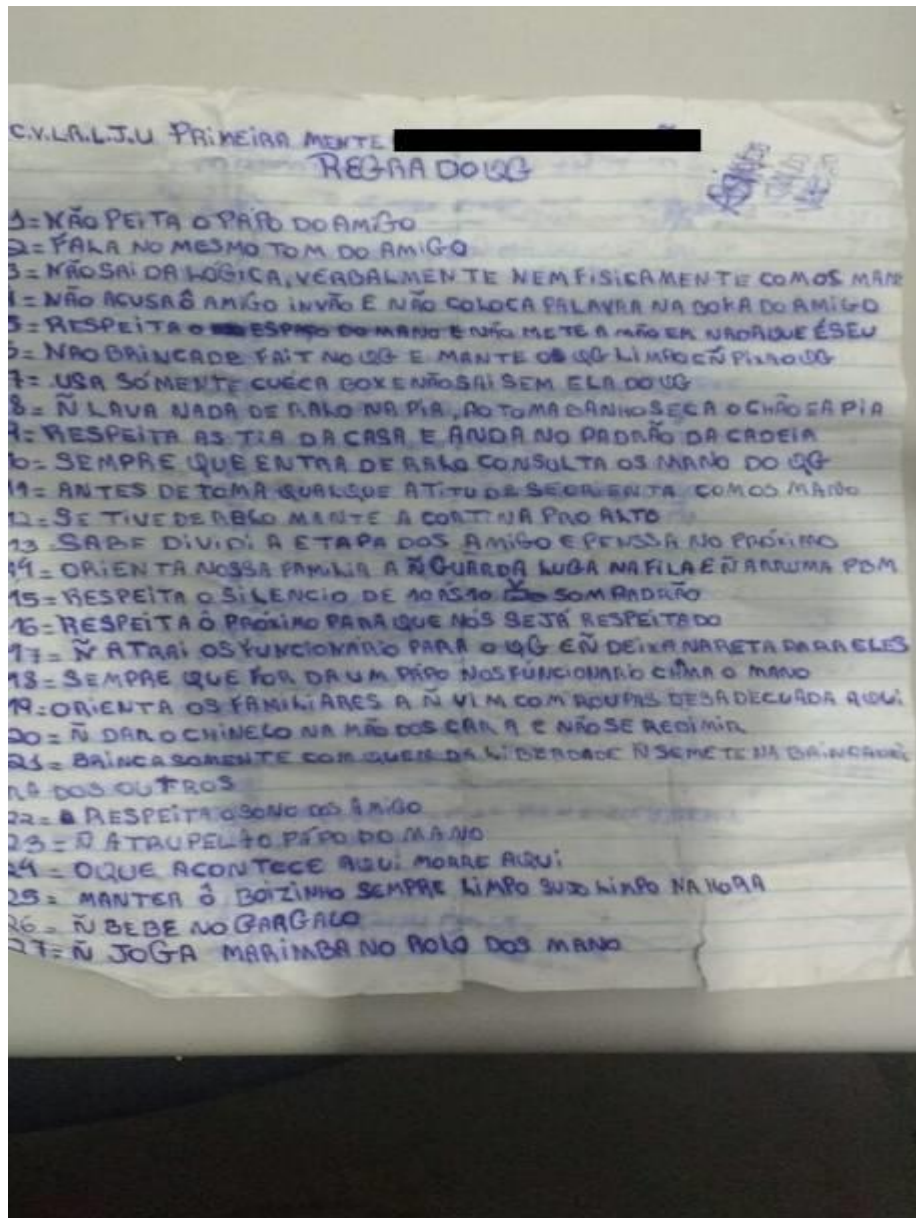 C.V.LR.L.J.U PRIMEIRA MENTE
REGRA DO QG
1= NÃO PEITA O PAPO DO AMIGO
2= FALA NO MESMO TOM DO AMIGO
3= NÃO SAI DA LÓGICA, VERBALMENTE NEM FISICAMENTE COM OS MANO
4= NÃO ACUSA Ô AMIGO INVÃO E NÃO COLOCA PALAVRA NA BOKA DO AMIGO
5= RESPEITA O ESPAÇO DO MANO E NÃO METE A MÃO EM NADA QUE É SEU
6= NÃO BRINCA DE FAIT NO QG E MANTE OS QG LIMPO E Ñ PIXA O QG
7= USA SÓMENTE CUECA BOXE NÃO SAI SEM ELA DO QG
8= Ñ LAVA NADA DE RALO NA PIA, AO TOMA BANHO SECA O CHÃO E A PIA
9= RESPEITA AS TIA DA CASA E ANDA NO PADRÃO DA CADEIA
10= SEMPRE QUE ENTRA DE RALO CONSULTA OS MANO DO QG
11= ANTES DE TOMA QUALQUE ATITUDE SE ORIENTA COM OS MANO
12= SE TIVE DE RALO MANTE A CORTINA PRO ALTO
13 SABE DIVIDI A ETAPA DOS AMIGO E PENSSA NO PRÓXIMO
14= ORIENTA NOSSA FAMILIA A Ñ GUARDA LUGA NA FILA E Ñ ARRUMA PBM
15= RESPEITA O SILENCIO DE 10 ÁS 10 SOM PADRÃO
16= RESPEITA Ô PRÓXIMO PARA QUE NÓS SEJÁ RESPEITADO
17= Ñ ATRAI OS FUNCIONÁRIO PARA O QG E Ñ DEIXA NA RETA PARA ELES
18= SEMPRE QUE FOR DA UM PAPO NOS FÚNCIONARIO CHAMA O MANO
19= ORIENTA OS FAMILIARES A Ñ VIM COM ROUPAS DESADECUADA AQUI
20= Ñ DAR O CHINELO NA MÃO DOS CARA E NÃO SE REDIMIR
21= BRINCA SOMENTE COM QUEM DA LIBERDADE Ñ SE METE NA BRINCADEI
RA DOS OUTROS
22= RESPEITA O SONO DOS AMIGO
23= Ñ ATRUPELA O PAPO DO MANO
24= OQUE ACONTECE AQUI MORRE AQUI
25= MANTER Ô BOIZINHO SEMPRE LIMPO SUJO LIMPO NA HORA
26= Ñ BEBE NO GARGALO
27= Ñ JOGA MARIMBA NO ROLO DOS MANO